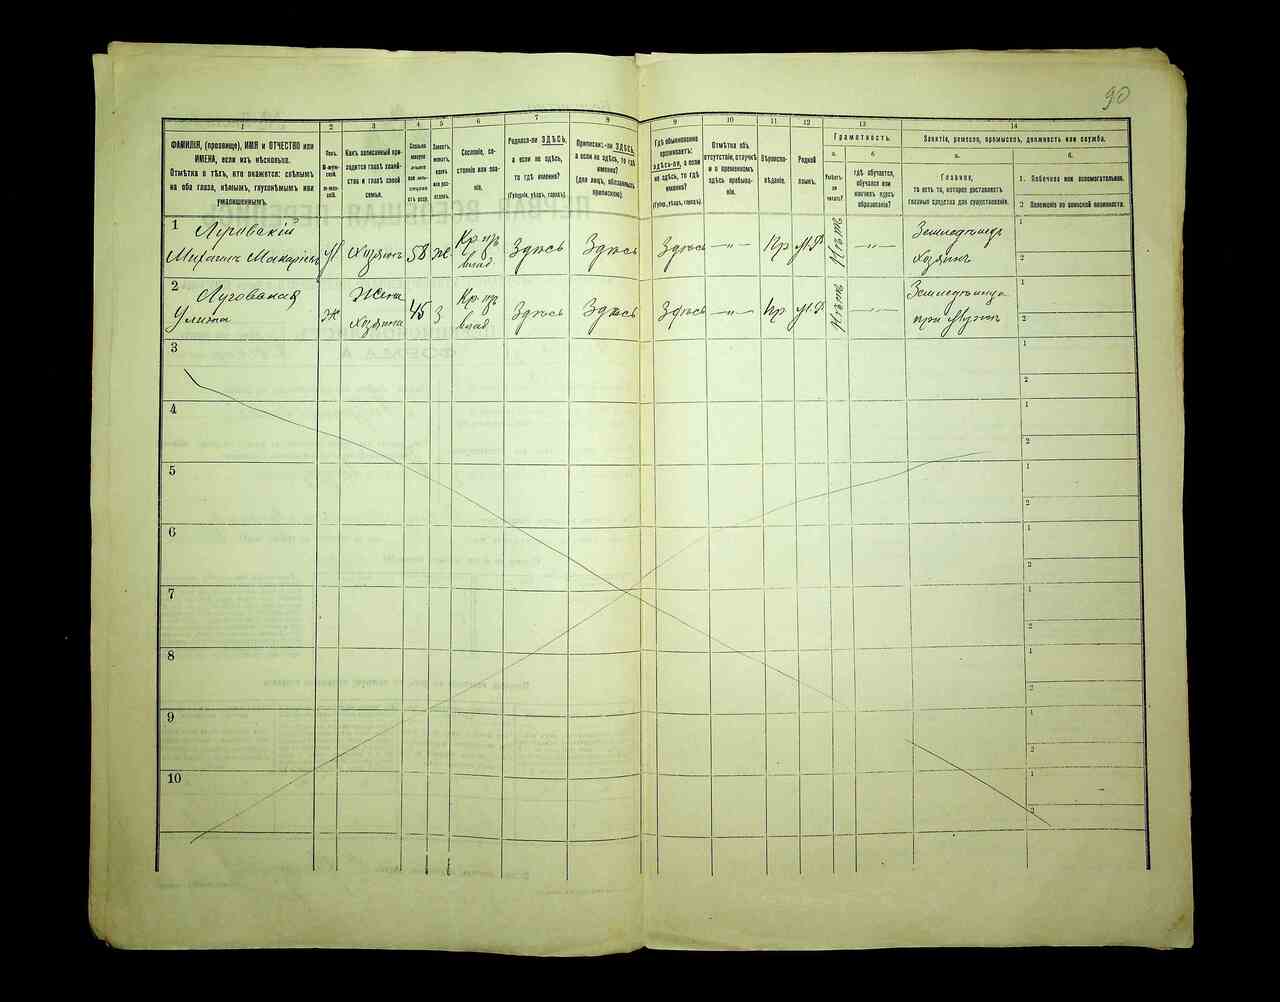 90
1 2 3 4 5 6 7 8 9 10 11 12 13 14
ФАМИЛІЯ, (прозвище), ИМЯ и ОТЧЕСТВО или
ИМЕНА, если ихъ нѣсколько.
Отмѣтка о тѣхъ, кто окажется: слѣпымъ
на оба глаза, нѣмымъ, глухонѣмымъ или
умалишеннымъ.
Полъ.
М-муж-
ской.
Ж-жен-
скій.
Какъ записанный при-
ходится главѣ хозяй-
ства и главѣ своей
семьи.
Сколько
минуло
лѣтъ
или мѣ-
сяцевъ
отъ роду.
Холостъ,
женатъ,
вдовъ
или раз-
веденъ.
Сословіе, со-
стояніе или зва-
ніе.
Родился-ли ЗДѢСЬ,
а если не здѣсь,
то гдѣ именно?
(Губернія, уѣздъ, городъ).
Приписанъ-ли ЗДѢСЬ,
а если не здѣсь, то гдѣ
именно?
(для лицъ, обязанныхъ
припискою).
Гдѣ обыкновенно
проживаетъ:
здѣсь-ли, а если
не здѣсь, то гдѣ
именно?
(Губер., уѣздъ, городъ).
Отмѣтка объ
отсутствіи, отлучкѣ
и о временномъ
здѣсь пребыва-
ніи.
Вѣроиспо-
вѣданіе.
Родной
языкъ.
Грамотность.
а.
Умѣетъ-
ли
читать?
б
гдѣ обучается,
обучался или
кончилъ курсъ
образованія?
Занятіе, ремесло, промыселъ, должность или служба.
а.
Главное,
то есть то, которое доставляетъ
главныя средства для существованія.
б.
1. Побочное или вспомогательное.
2 Положеніе по воинской повинности.
1 Луговскій
Михаилъ Макаріевъ М Хозяинъ 58 ж. Кр. изъ влад Здѣсь Здѣсь Здѣсь —„— Кр М.Р Нѣтъ —„— Земледѣлецъ
Хозяинъ
1
2
2 Луговская
Улита Ж Жена
хозяина 45 З Кр. изъ
влад Здѣсь Здѣсь Здѣсь —„— Кр М.Р Нѣтъ —„— Земледѣлица
при Мужѣ
1
2
3
1
2
4
1
2
5
1
2
6
1
2
7
1
2
8
1
2
9
1
2
10
1
2